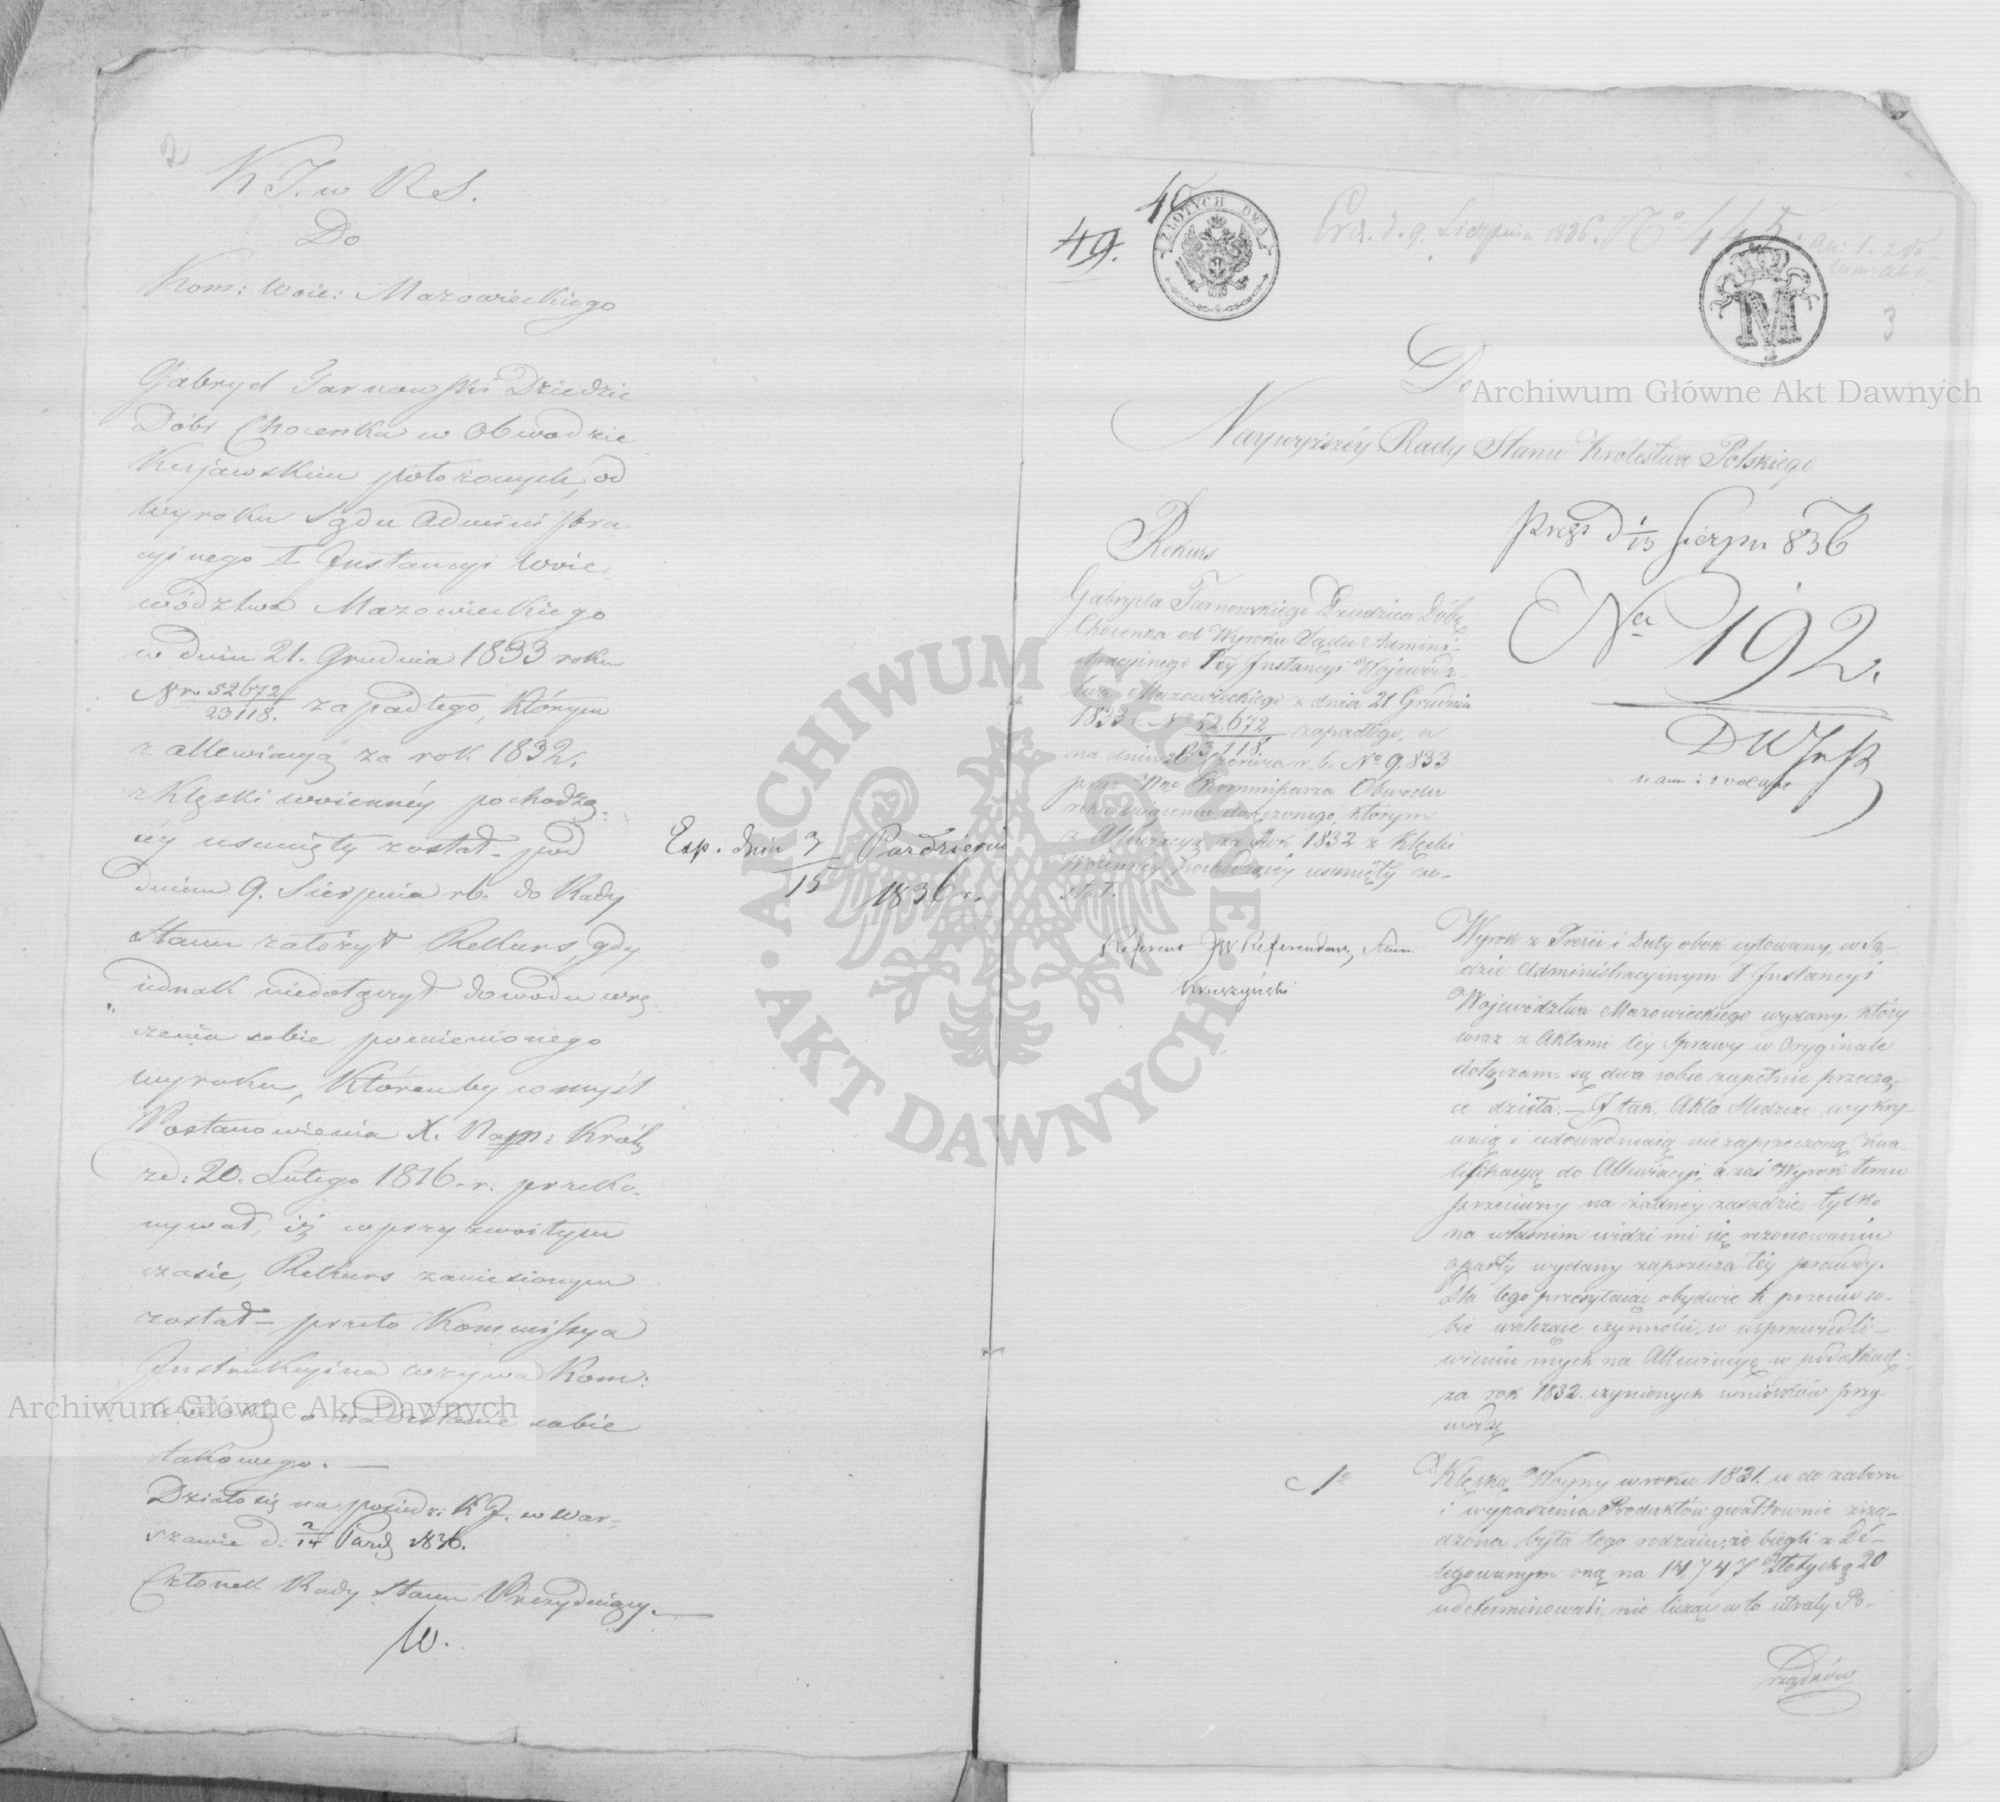 2
K J. w R S.
Do
Kom: Woie: Mazowieckiego
Gabryel Tarnowski Dziedzic
Dóbr Chocenka w Obwodzie
Kujawskim położonych, od
Wyroku Sądu Administra
cyinego I Instancyi Woie
wództwa Mazowieckiego
w dniu 21. Grudnia 1833 roku
Nro 52672/23118. zapadłego, którym
z allewiacyą za rok 1832.
z klęski woienney pochodzą-
cey usunięty został – pod
dniem 9. Sierpnia rb. do Rady
Stanu założył Rekurs, gdy
iednak niedołączył dowodu wrę-
czenia sobie pomienionego
wyroku, któren by w myśl
Postanowienia X. Nam: Król:
zd: 20. Lutego 1816. r. przeko-
nywał, iż w przyzwoitym
czasie, Rekurs zaniesionym
został – przeto Kommissya
Instrukcyina wzywa Kom:
o nadesłanie sobie
takowego. —
Działo się na posiedz: K J. w War-
szawie d: 2/14 Paźdz 1836.
Członek Rady Stanu Prezyduiący. —
W.
Exp. dnia 3/15 Październ
1836 r.
49.
46
ZŁOTYCH DWA
Prd. d. 9. Sierpnia 1836. No 445.
M
3
Do
Archiwum Główne Akt Dawnych
Naywyższéy Rady Stanu Królestwa Polskiego
Prez D 1/13 Sierpn 836
Na 192.
Rekurs
Gabryela Tarnowskiego Dziedzica Dóbr
Chocenka od Wyroku Sądu Admini-
stracyinego I éy Instancyi Wojewódz-
twa Mazowieckiego z dnia 21 Grudnia
1833 r. No 52,672/23,118. zapadłego, a
na dniu 26 Czerwca r. b. No 9,833
przez Wgo Kommissarza Obwodu
doręczonego, którym
z Allewiacyi za Rok 1832 z Klęski
Woienney pochodzącey usunięty zo-
stał.
Referent JW Referendarz Stanu
Kruszyński
Wyrok z Treści i Daty obok cytowany, w Są-
dzie Administracyinym I Instancyi
Województwa Mazowieckiego wydany, który
wraz z Aktami tey Sprawy w Oryginale
dołączam, są dwa sobie zupełnie przeczą-
ce dzieła. — J tak. Akta Medzcze wykry-
waią i udowadniaią niezaprzeczoną kwa-
lifikacyą do Allewiacyi, a zaś Wyrok temu
przeciwny na żadney zasadzie, tylko
na własnim widzi mi się rezonowaniu
oparty wydany zaprzecza téy prawdy.
Dla tego przesyłaiąc obydwie te przeciw so-
bie walczące czynności, w usprawiedli-
wieniu mych na Allewiacyę w podatkach
za rok 1832 czynionych wniosków przy-
wodzę
1o
Klęska Woyny w roku 1831. w do zaboru
i wypasienia Produktów gwałtownie zrzą-
dzona była tego rodzaiu, że biegli z De-
legowanym onę na 14,747 Złotych g 20
udeterminowali, nie licząc w to utraty Po-
rządków
ARCHIWUM GŁÓWNE AKT DAWNYCH
Archiwum Główne Akt Dawnych